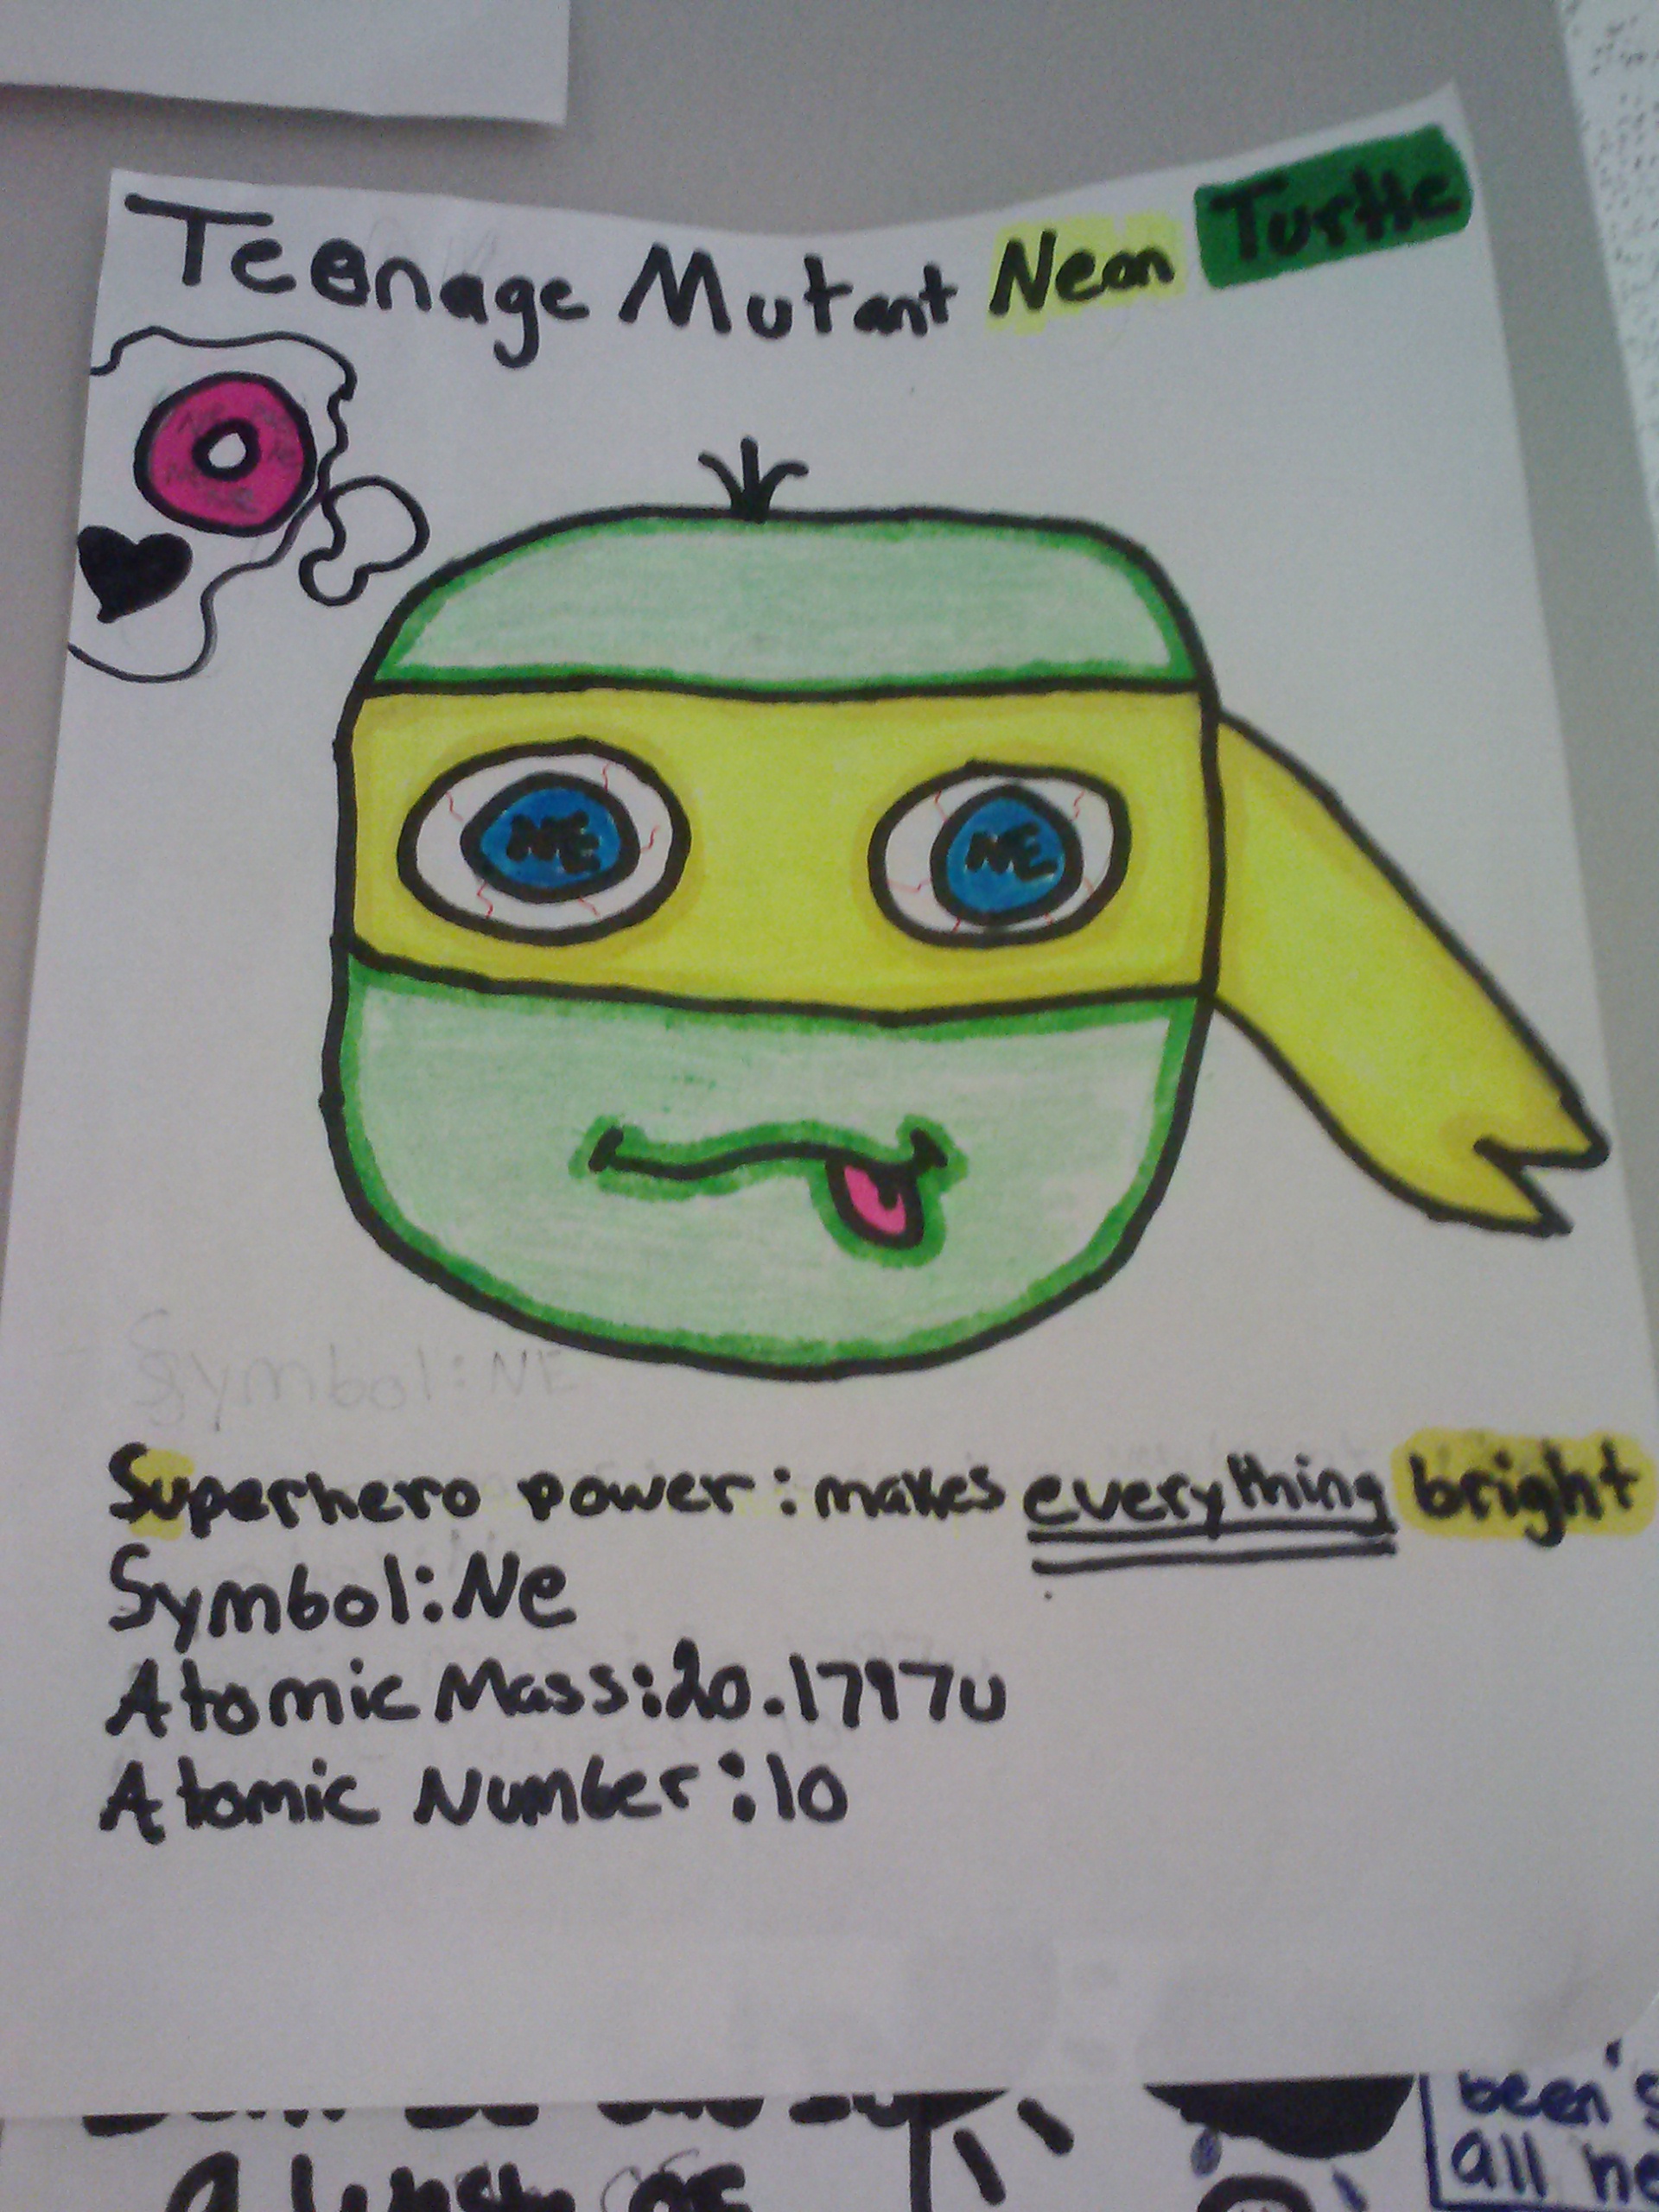 Teenage Mutant Neon Turtle
NE NE
Symbol: NE
Superhero power: makes everything bright
Symbol: Ne
Atomic Mass: 20.1797u
Atomic Number: 10
been's
all he